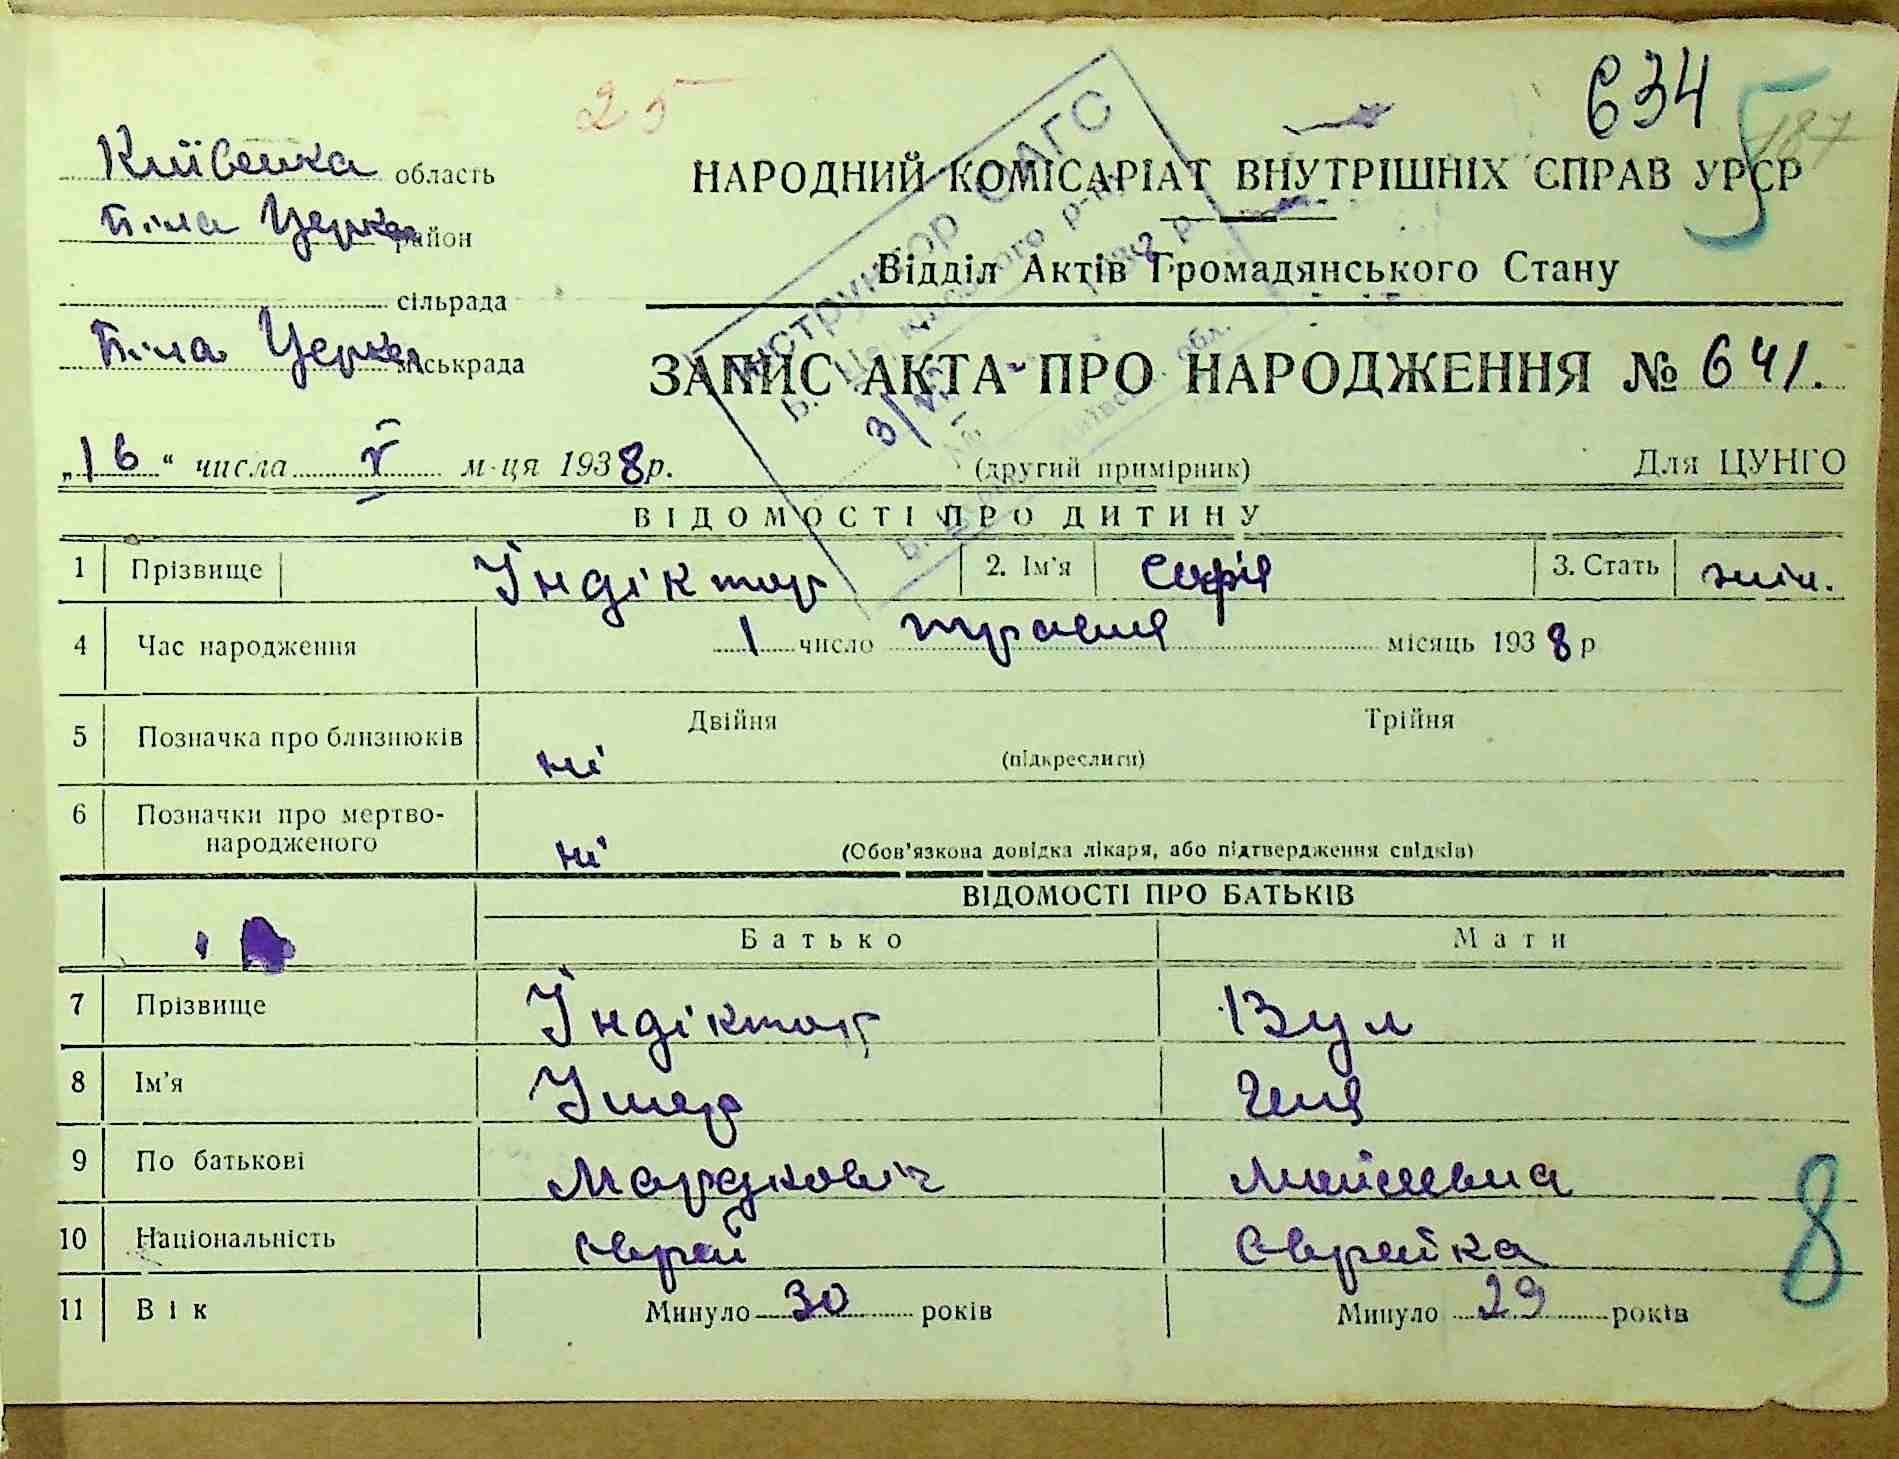 25
634
187
5
Київська область
Біла Церква район
сільрада
Біла Церква міськрада
НАРОДНИЙ КОМІСАРІАТ ВНУТРІШНІХ СПРАВ УРСР
Відділ Актів Громадянського Стану
ЗАПИС АКТА ПРО НАРОДЖЕННЯ № 641.
Інструктор ЗАГС
„16“ числа V м-ця 1938 р.
(другий примірник)
Для ЦУНГО
ВІДОМОСТІ ПРО ДИТИНУ
1 Прізвище Індіктор 2. Ім'я Софія 3. Стать жін.
4 Час народження 1 число травня місяць 1938 р
5 Позначка про близнюків ні Двійня Трійня
(підкреслити)
6 Позначки про мертво-
народженого ні (Обов'язкова довідка лікаря, або підтвердження свідків)
ВІДОМОСТІ ПРО БАТЬКІВ
Батько Мати
7 Прізвище Індіктор Вул
8 Ім'я Ушер Геня
9 По батькові Мордковіч Мойсеевна
10 Національність Єврей Єврейка
8
11 Вік Минуло 30 років Минуло 29 років